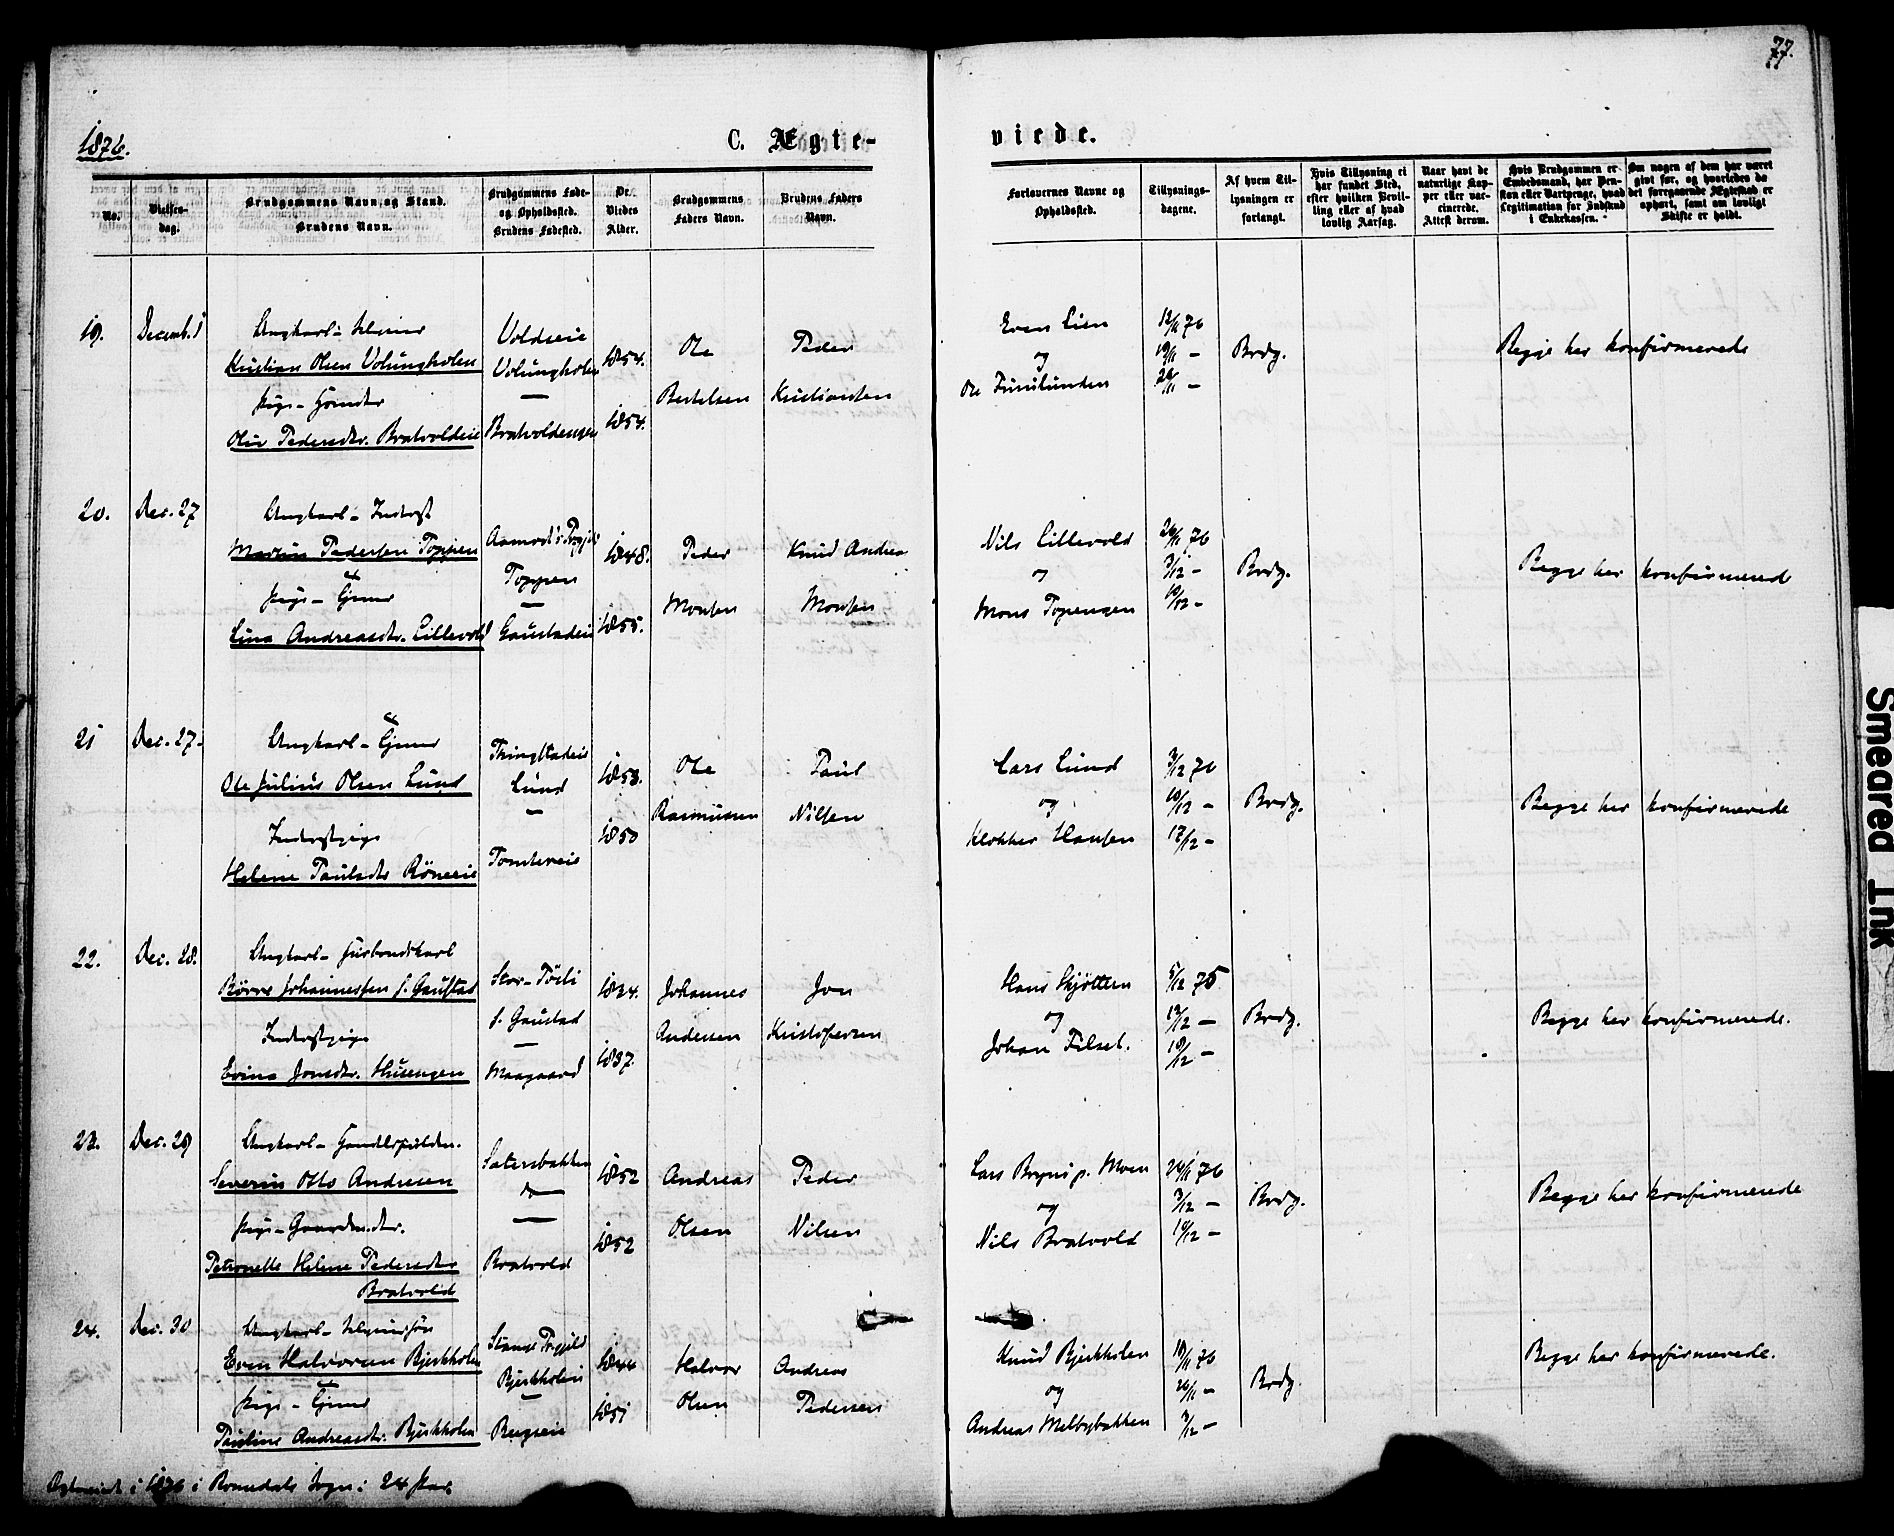 77.
1876.
C. Ægte-
viede.
No.
Vielses-
dag.
Brudgommens Navn og Stand.
Brudens Navn.
Brudgommens Føde-
og Opholdssted.
Brudens Fødested.
De
Viedes
Alder.
Brudgommens
Faders Navn.
Brudens Faders
Navn.
Forlovernes Navne og
Opholdssted.
Tillysnings-
dagene.
Af hvem Til-
lysningen er
forlangt.
Hvis Tillysning ei
har fundet Sted,
efter hvilken Bevil-
ling eller af hvad
lovlig Aarsag.
Naar havt de
naturlige Kop-
per eller vac-
cinerede.
Attest derom.
Hvis Brudgommen er
Embedsmand, har Pen-
sion eller Vartpenge, hvad
Legitimation for Indskud
i Enkekassen.
Om nogen af dem har været
gift før, og hvorledes da
det foregaaende Ægteskab er
ophørt, samt om lovligt
Skifte er holdt.
19. Decemb. 1
Ungkarl -
Kristian Olsen Volungholen
Pige -
Olin Pedersdtr. Bratvoldeie
Voldseie
Volungholen
—
Bratvoldengen
1854.
1854.
Ole
Bertelsen
Peder
Kristiansen
Even Lien
og
Ole Furulunden
12/11 76
19/11 —
26/11 —
Brdg.
Begge her konfirmerede
20. Dec. 27
Ungkarl - Inderst
Martin Pedersen Toppen
Pige - Tjener
Lina Andreasdtr. Lillevold
Aamodt Prgjeld
Toppen
—
Gaustadeie
1848.
1855.
Peder
Monsen
Knud Andrea
Monsen
Nils Lillevold
og
Mons Topengen
26/11 76
3/12 —
10/12 —
Brdg.
Begge her konfirmerede
21 Dec. 27.
Ungkarl - Tjener
Ole Julius Olsen Lund
Inderstpige
Helene Paulsdtr Röneeie
Thingstadeie
Lund
—
Tomtereie
1853.
1850
Ole
Rasmussen
Paul
Nilsen
Lars Lund
og
Klokker Hansen
3/12 76
10/12 —
17/12 —
Brdg.
Begge her konfirmerede
22. Dec. 28.
Ungkarl - Husbondskarl
Börre Johannessen f. Gaustad
Inderstpige
Evina Jonsdtr. Husengen
Stor-Tösti
f. Gaustad
—
Maagaard
1834.
1837.
Johannes
Andersen
Jon
Kristofersen
Hans Skjötten
og
Johan Filset.
5/12 75
12/12 —
19/12 —
Brdg.
Begge her konfirmerede.
23. Dec. 29
Ungkarl -
Severin Otto Andresen
Pige - Gaardm.dtr.
Petronelle Helene Pedersdtr
Bratvold
Satersbakken
—
Bratvold
1852
1852
Andreas
Olsen
Peder
Nilsen
Lars Moen
og
Nils Bratvold
26/11 76
3/12 —
10/12 —
Brdg.
Begge her konfirmerede
24. Dec. 30
Ungkarl -
Even Halvorsen Bjerkholen
Pige - Tjener
Pauline Andreasdtr. Bjerkholen
Stange Prgjeld
Bjerkholen
—
Bergseie
1844
1851
Halvor
Olsen
Andreas
Pedersen
Knud Bjerkholen
og
Andreas Melbybakken
19/11 76
26/11 —
3/12 —
Brdg.
Begge her konfirmerede.
i 1876 i Romedals Sogn: 24 Par
Smeared Ink